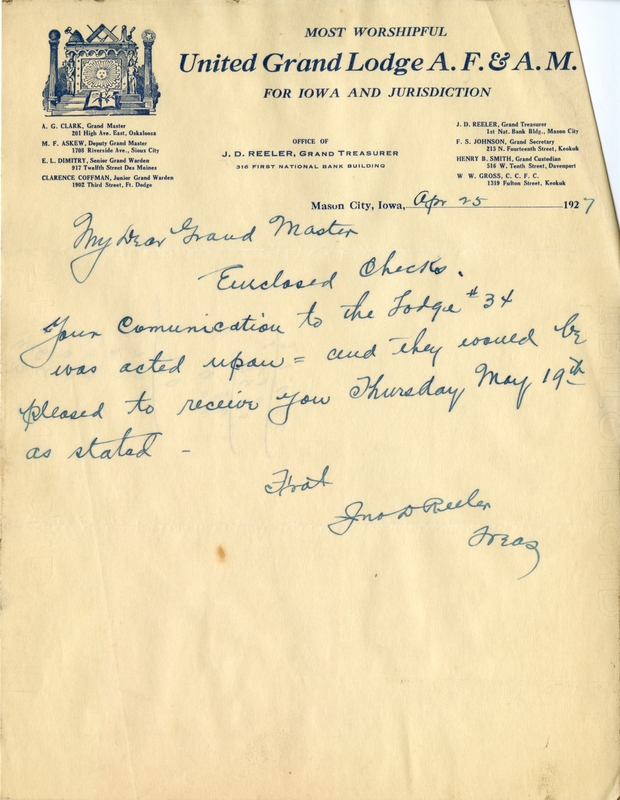 MOST WORSHIPFUL
United Grand Lodge A. F. & A. M.
FOR IOWA AND JURISDICTION
A. G. CLARK, Grand Master
201 High Ave. East, Oskaloosa
M. F. ASKEW, Deputy Grand Master
1708 Riverside Ave., Sioux City
E. L. DIMITRY, Senior Grand Warden
917 Twelfth Street Des Moines
CLARENCE COFFMAN, Junior Grand Warden
1902 Third Street, Ft. Dodge
OFFICE OF
J. D. REELER, GRAND TREASURER
316 FIRST NATIONAL BANK BUILDING
J. D. REELER, Grand Treasurer
1st Nat. Bank Bldg., Mason City
F. S. JOHNSON, Grand Secretary
215 N. Fourteenth Street, Keokuk
HENRY B. SMITH, Grand Custodian
516 W. Tenth Street, Davenport
W. W. GROSS, C. C. F. C.
1319 Fulton Street, Keokuk
Mason City, Iowa, Apr 25 1927
My Dear Grand Master
Enclosed Checks.
Your Comunication to the Lodge #34
was acted upon = and they would be
pleased to receive you Thursday May 19th
as stated -
Frat
Jno D Reeler
Treas